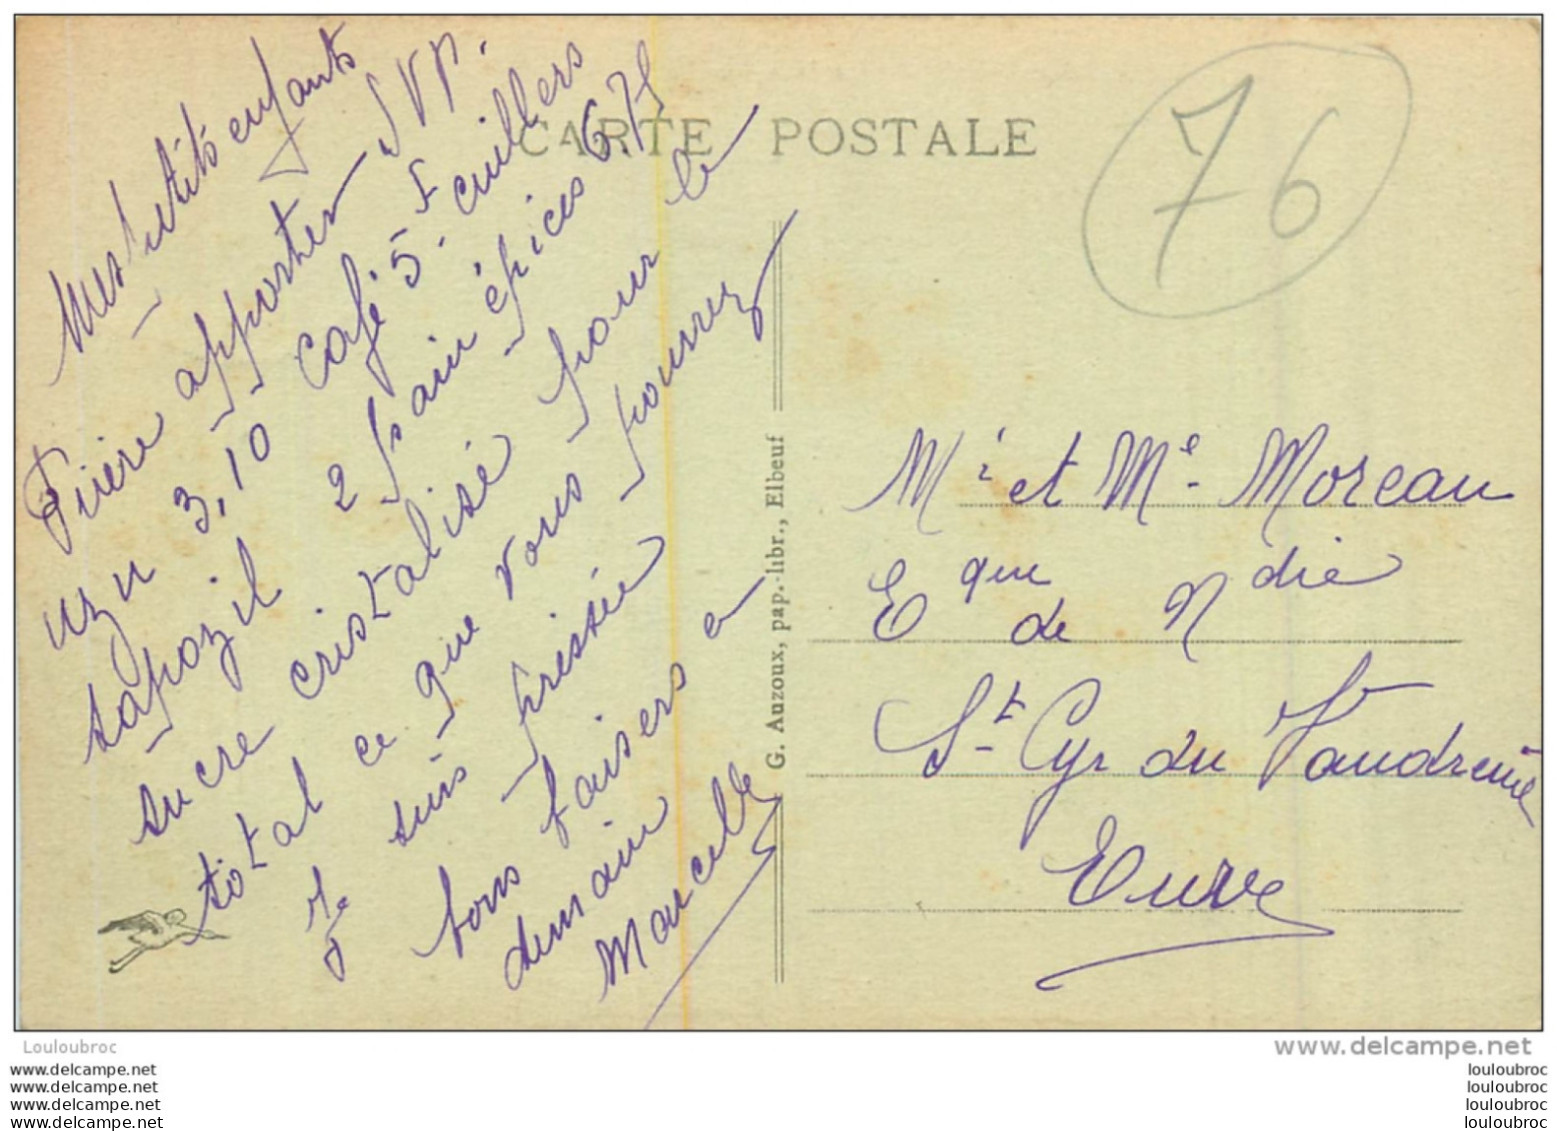 Mes petits enfants
Prière apporter SVP.
un 3,10 Café 5F cuillers
sapozil 2 pain épices 6.75
sucre cristalisé pour le
total ce que vous pourrez
Je suis pressée
bons baisers a
demain
Marcelle
CARTE POSTALE
76
G. Auzoux, pap.-libr., Elbeuf
Mr et Me Moreau
Eque de Ndie
St Cyr du Vaudreuil
Eure
Louloubroc
www.delcampe.net
www.delcampe.net
www.delcampe.net
www.delcampe.net
www.delcampe.net
louloubroc
louloubroc
louloubroc
louloubroc